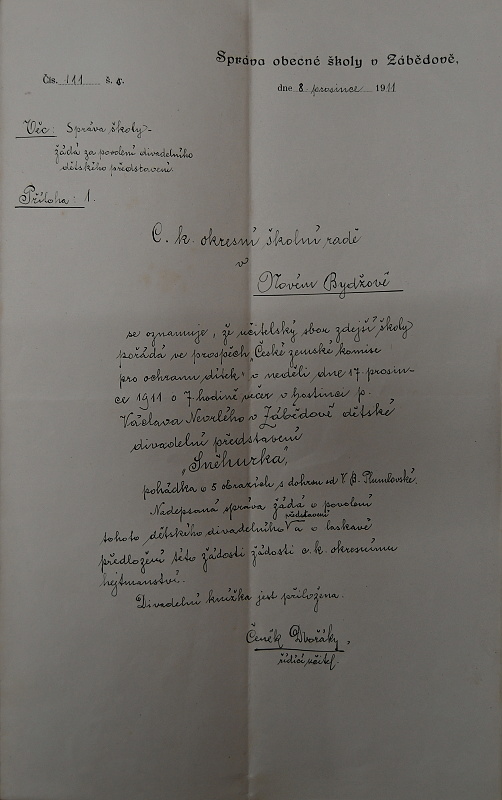 Správa obecné školy v Zábědově.
Čís. 111 š. r.
dne 8. prosince 1911
Věc: Správa školy
žádá za povolení divadelního
dětského představení.
Příloha: 1.
C. k. okresní školní radě
v
Novém Bydžově
se oznamuje, že učitelský sbor zdejší školy
pořádá ve prospěch „České zemské komise
pro ochranu dítek" v neděli dne 17. prosin-
ce 1911 o 7. hodině večer v hostinci p.
Václava Nevrlého v Zábědově dětské
divadelní představení
„Sněhurka",
pohádka o 5 obrazích s dohrou od V. B. Plumlovské.
Nadepsaná správa žádá o povolení
tohoto dětského divadelního představení a o laskavé
předložení této žádosti žádosti c. k. okresnímu
hejtmanství.
Divadelní knížka jest přiložena.
Čeněk Dvořáky,
řídící učitel.